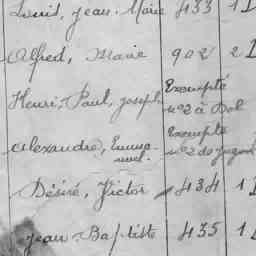 Louis, Jean-Marie 433 1
Alfred, Marie 902 2
Henri, Paul, Joseph Exempté nº2 à Dol
Alexandre, Emma-nuel. Exempté nº2 de
Désiré, Victor 434 1
Jean-Baptiste 435 1